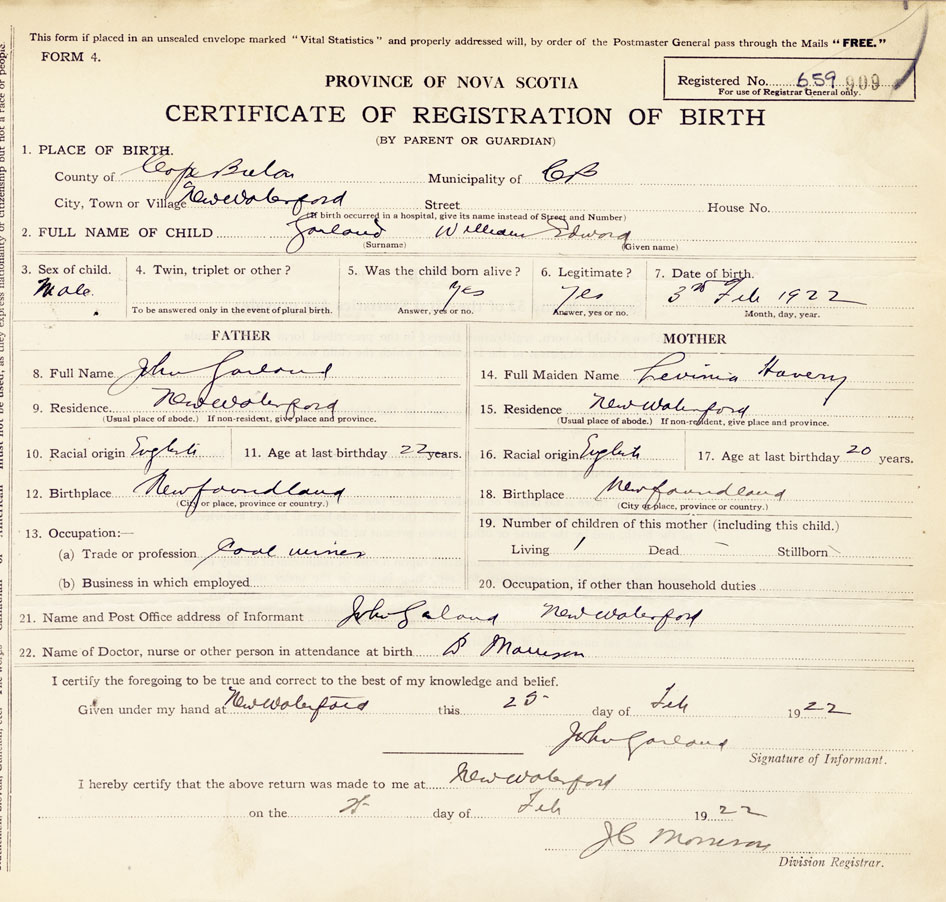 This form if placed in an unsealed envelope marked "Vital Statistics" and properly addressed will, by order of the Postmaster General pass through the Mails "FREE."
FORM 4.
PROVINCE OF NOVA SCOTIA
Registered No. 659 909
For use of Registrar General only.
CERTIFICATE OF REGISTRATION OF BIRTH
(BY PARENT OR GUARDIAN)
1. PLACE OF BIRTH.
County of Cape Breton Municipality of CB
City, Town or Village New Waterford Street House No.
(If birth occurred in a hospital, give its name instead of Street and Number)
2. FULL NAME OF CHILD Garland William Edward
(Surname) (Given name)
3. Sex of child. 4. Twin, triplet or other? 5. Was the child born alive? 6. Legitimate? 7. Date of birth.
Male. yes yes 3rd Feb 1922
To be answered only in the event of plural birth. Answer, yes or no. Answer, yes or no. Month, day, year.
FATHER
8. Full Name John Garland
9. Residence New Waterford
(Usual place of abode.) If non-resident, give place and province.
10. Racial origin English 11. Age at last birthday 22 years.
12. Birthplace Newfoundland
(City or place, province or country.)
13. Occupation:—
(a) Trade or profession Coal miner
(b) Business in which employed
MOTHER
14. Full Maiden Name Levinia Havery
15. Residence New Waterford
(Usual place of abode.) If non-resident, give place and province.
16. Racial origin English 17. Age at last birthday 20 years.
18. Birthplace Newfoundland
(City or place, province or country.)
19. Number of children of this mother (including this child.)
Living 1 Dead - Stillborn
20. Occupation, if other than household duties
21. Name and Post Office address of Informant John Garland New Waterford
22. Name of Doctor, nurse or other person in attendance at birth Morrison
I certify the foregoing to be true and correct to the best of my knowledge and belief.
Given under my hand at New Waterford this 25 day of Feb 1922
John Garland
Signature of Informant.
I hereby certify that the above return was made to me at New Waterford
on the 25 day of Feb 1922
J C Morrison
Division Registrar.